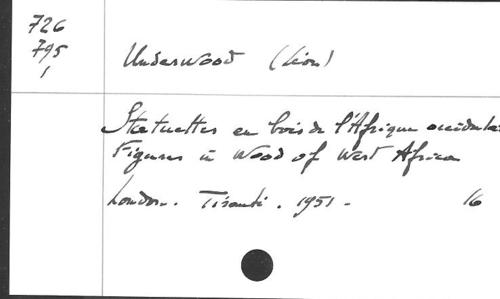 726
795
1
Underwood (Léon)
Statuettes en bois de l'Afrique occidentale
Figures in Wood of West Africa
London. Tiranti. 1951.
16